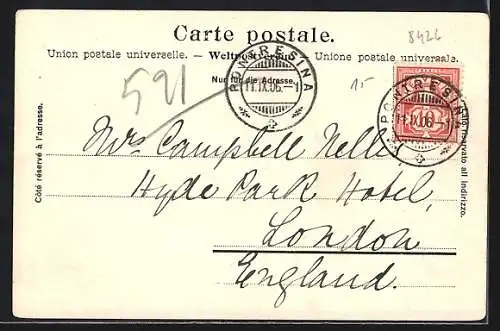 8426
Carte postale.
Union postale universelle. – Weltpostverein. – Unione postale universale.
Nur für die Adresse.
591
15
PONTRESINA
11.IX.06.–1
PONTRESINA
11.IX.06
10
Côté réservé à l'adresse.
Lato riservato all indirizzo.
Mrs Campbell Nelle
Hyde Park Hotel,
London
England.